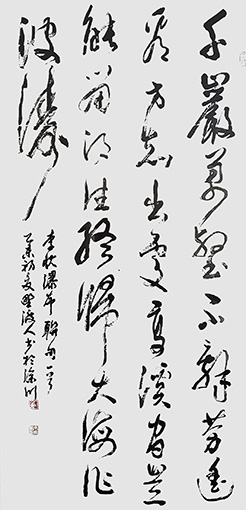 千巖萬壑不辭勞遠
看方知出處高溪澗豈
能留得住終歸大海作
波濤
李忱瀑布聯句一首
乙未初夏野渡人書於深圳